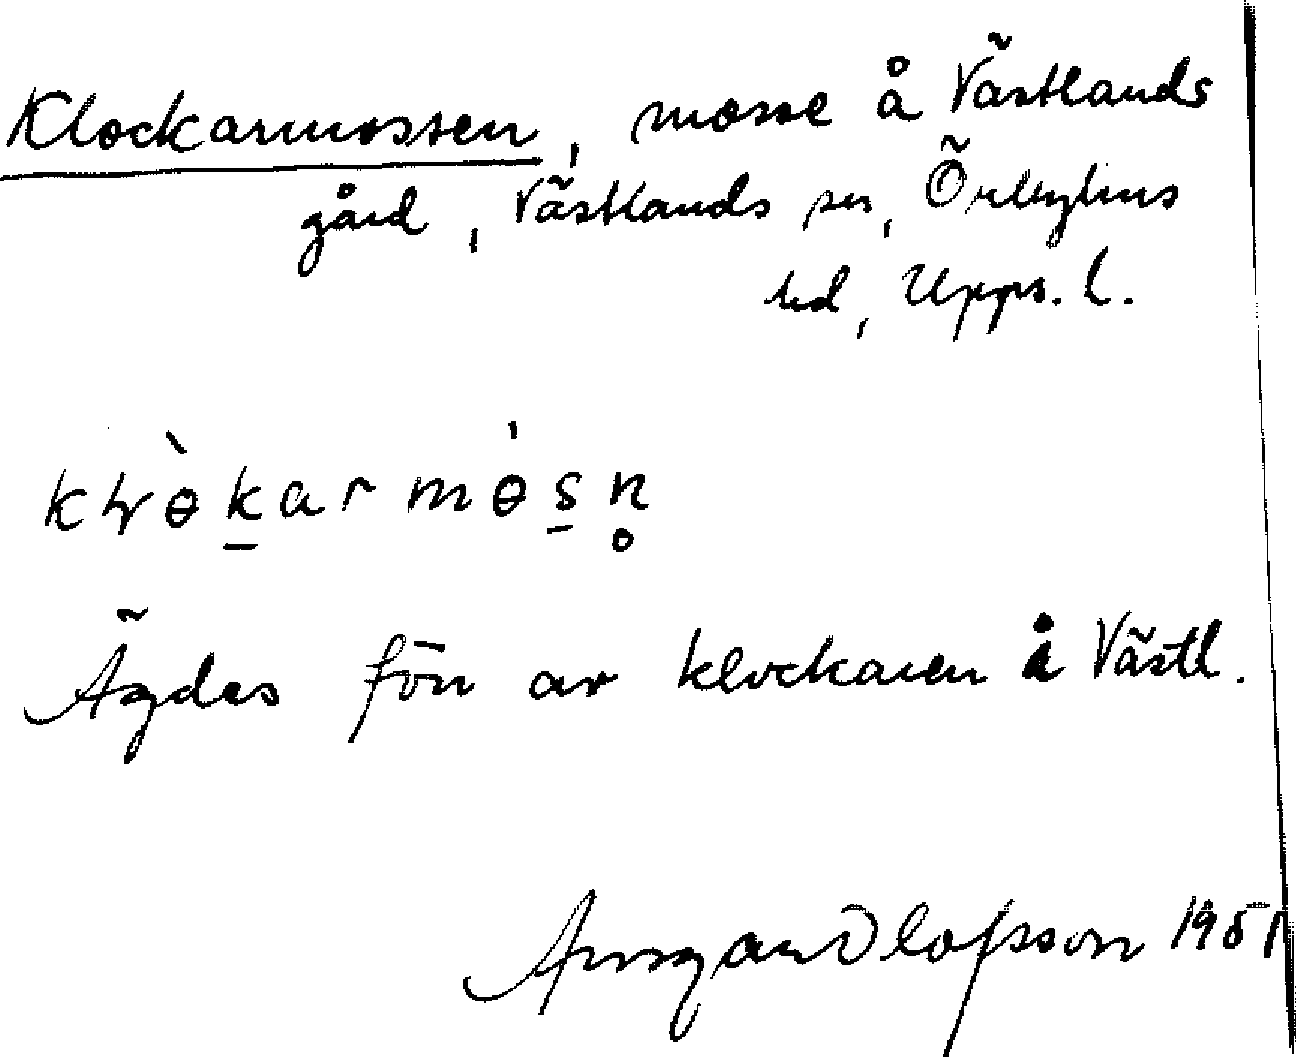 Klockarmossen, mosse å Västlands
gård, Västlands sn, Örbyhus
hd, Upps. l.
Ägdes förr av klockaren i Västl.
Ansgar Olofsson 1951